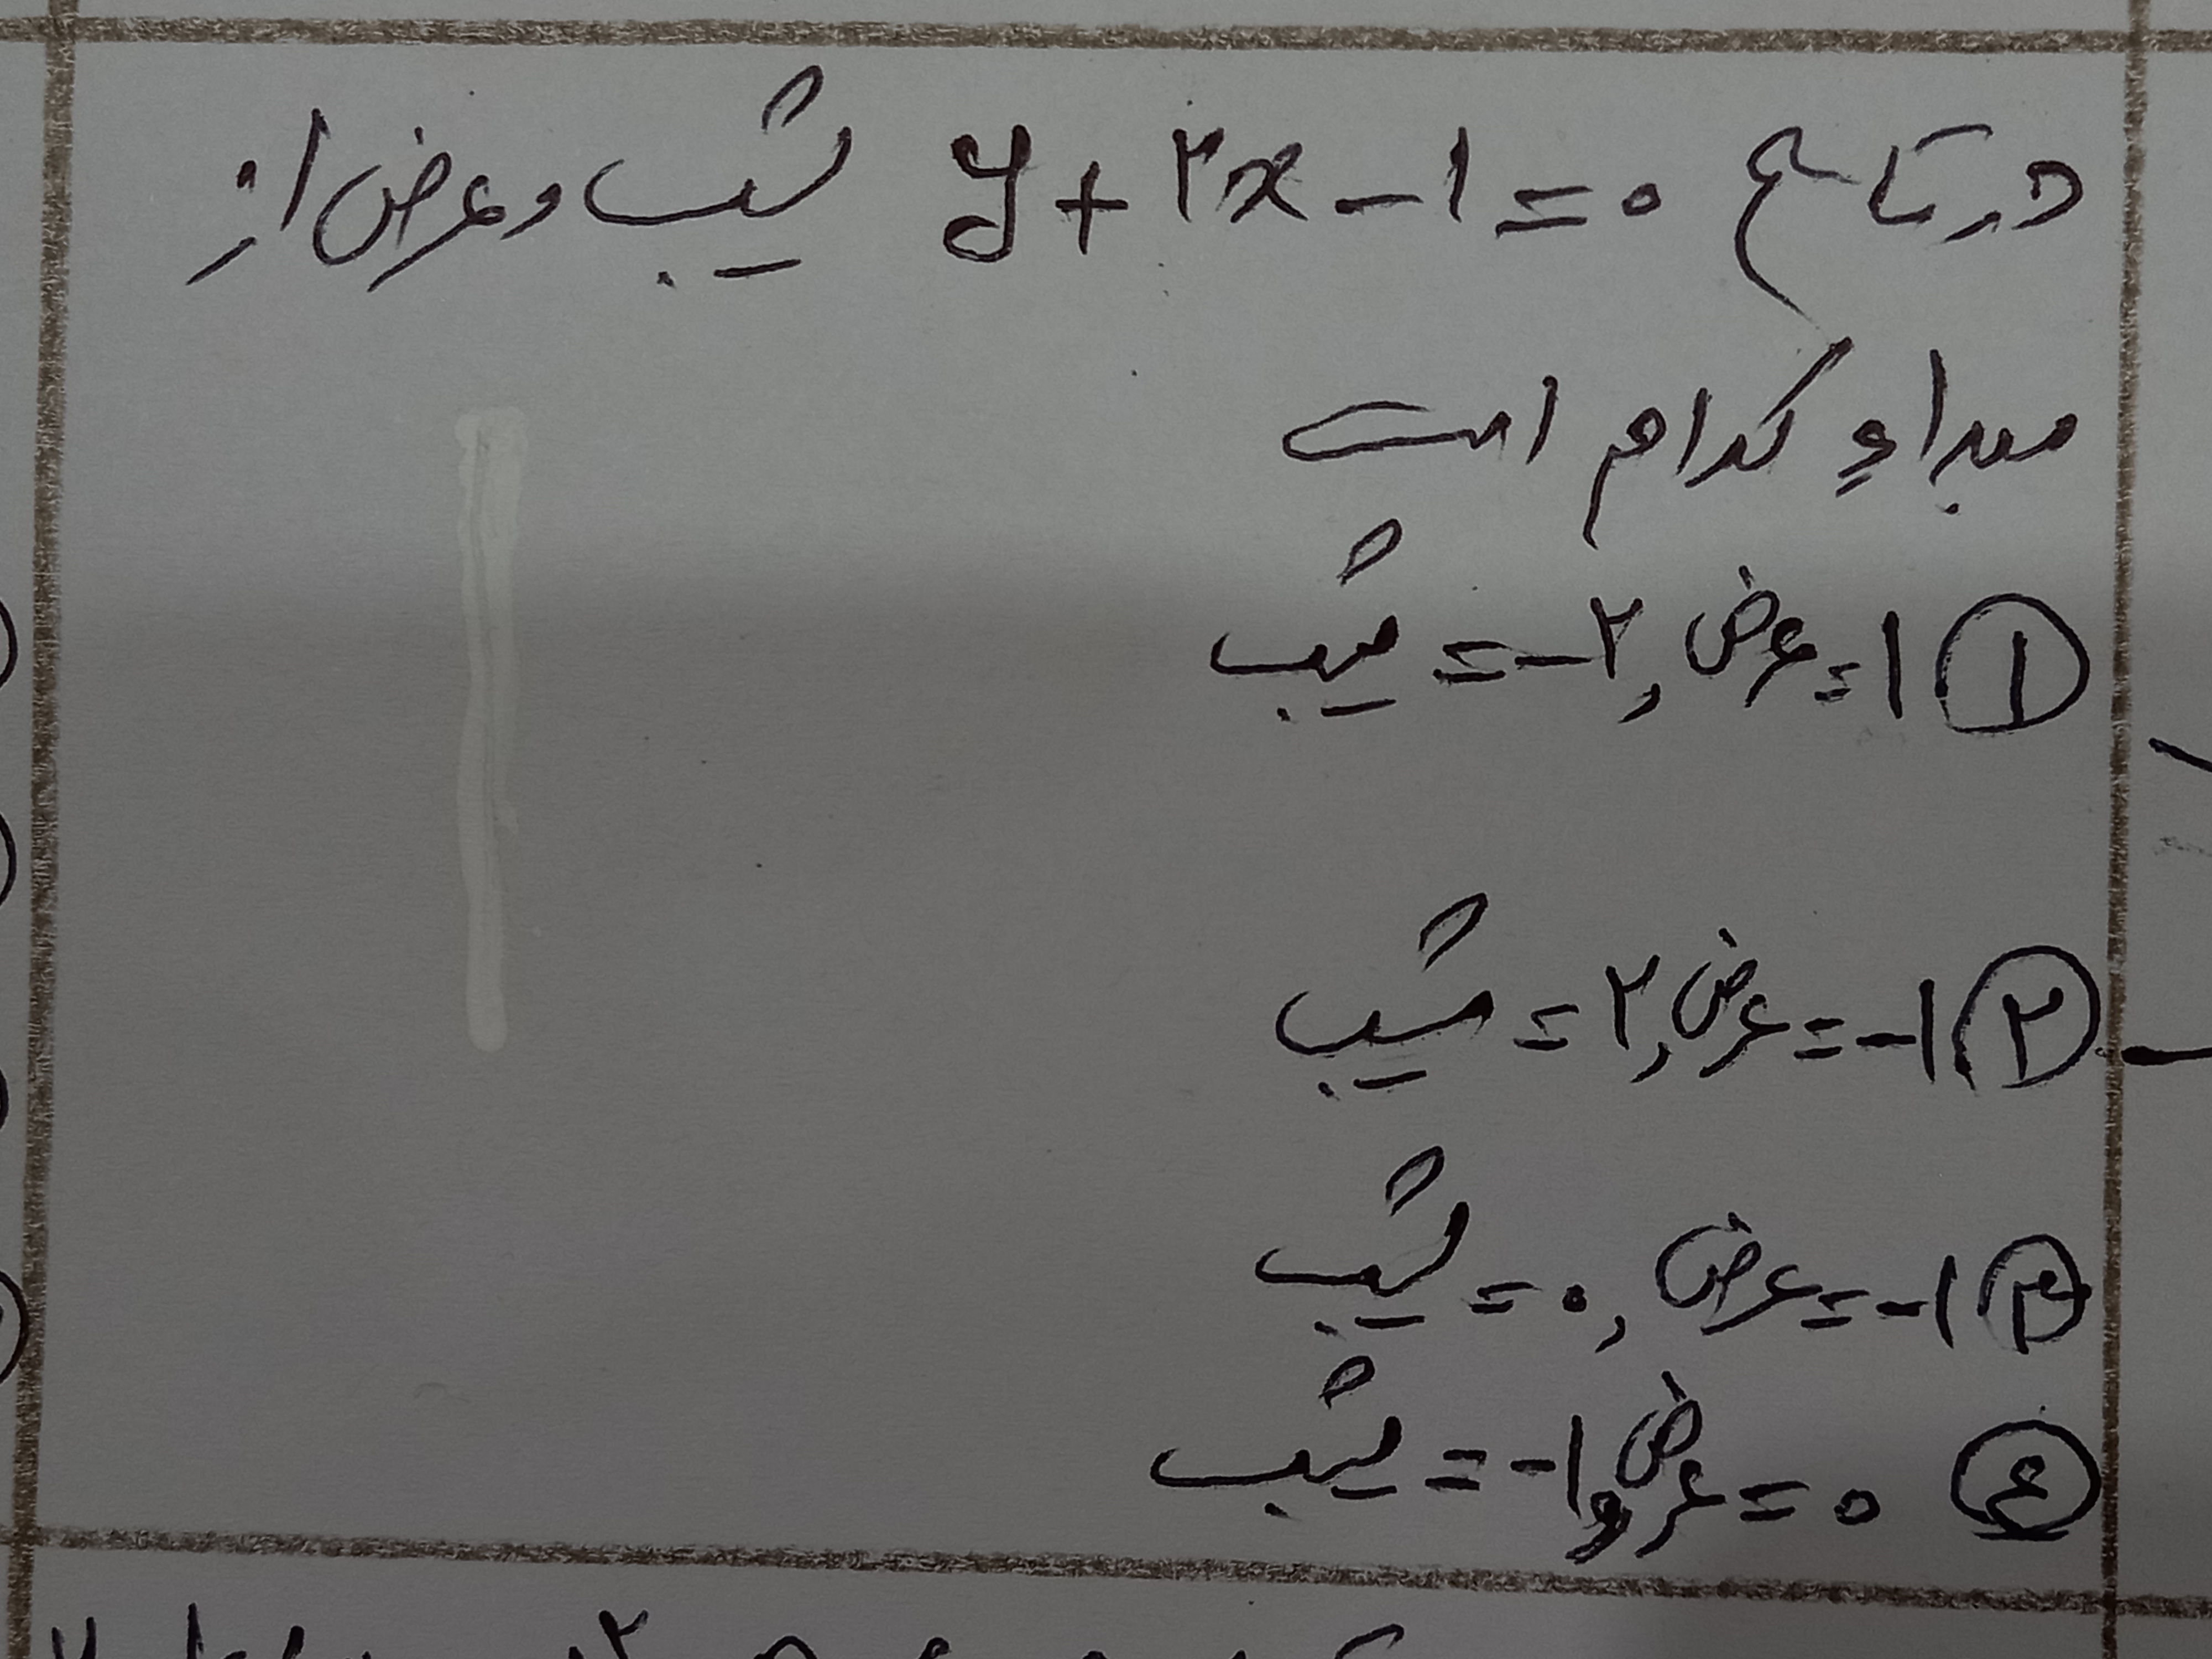 در تابع y + ۲x - ۱ = ۰ شیب و عرض از
مبداء کدام است
① شیب = -۲ , عرض = ۱
② شیب = ۲ , عرض = -۱
③ شیب = ۰ , عرض = -۱
④ شیب = -۱ و عرض = ۰